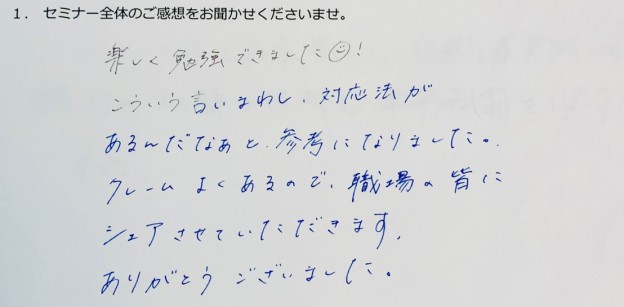 1. セミナー全体のご感想をお聞かせくださいませ。
楽しく勉強できました☺!
こういう言いまわし、対応法が
あるんだなぁと、参考になりました。
クレームよくあるので、職場の皆に
シェアさせていただきます。
ありがとうございました。